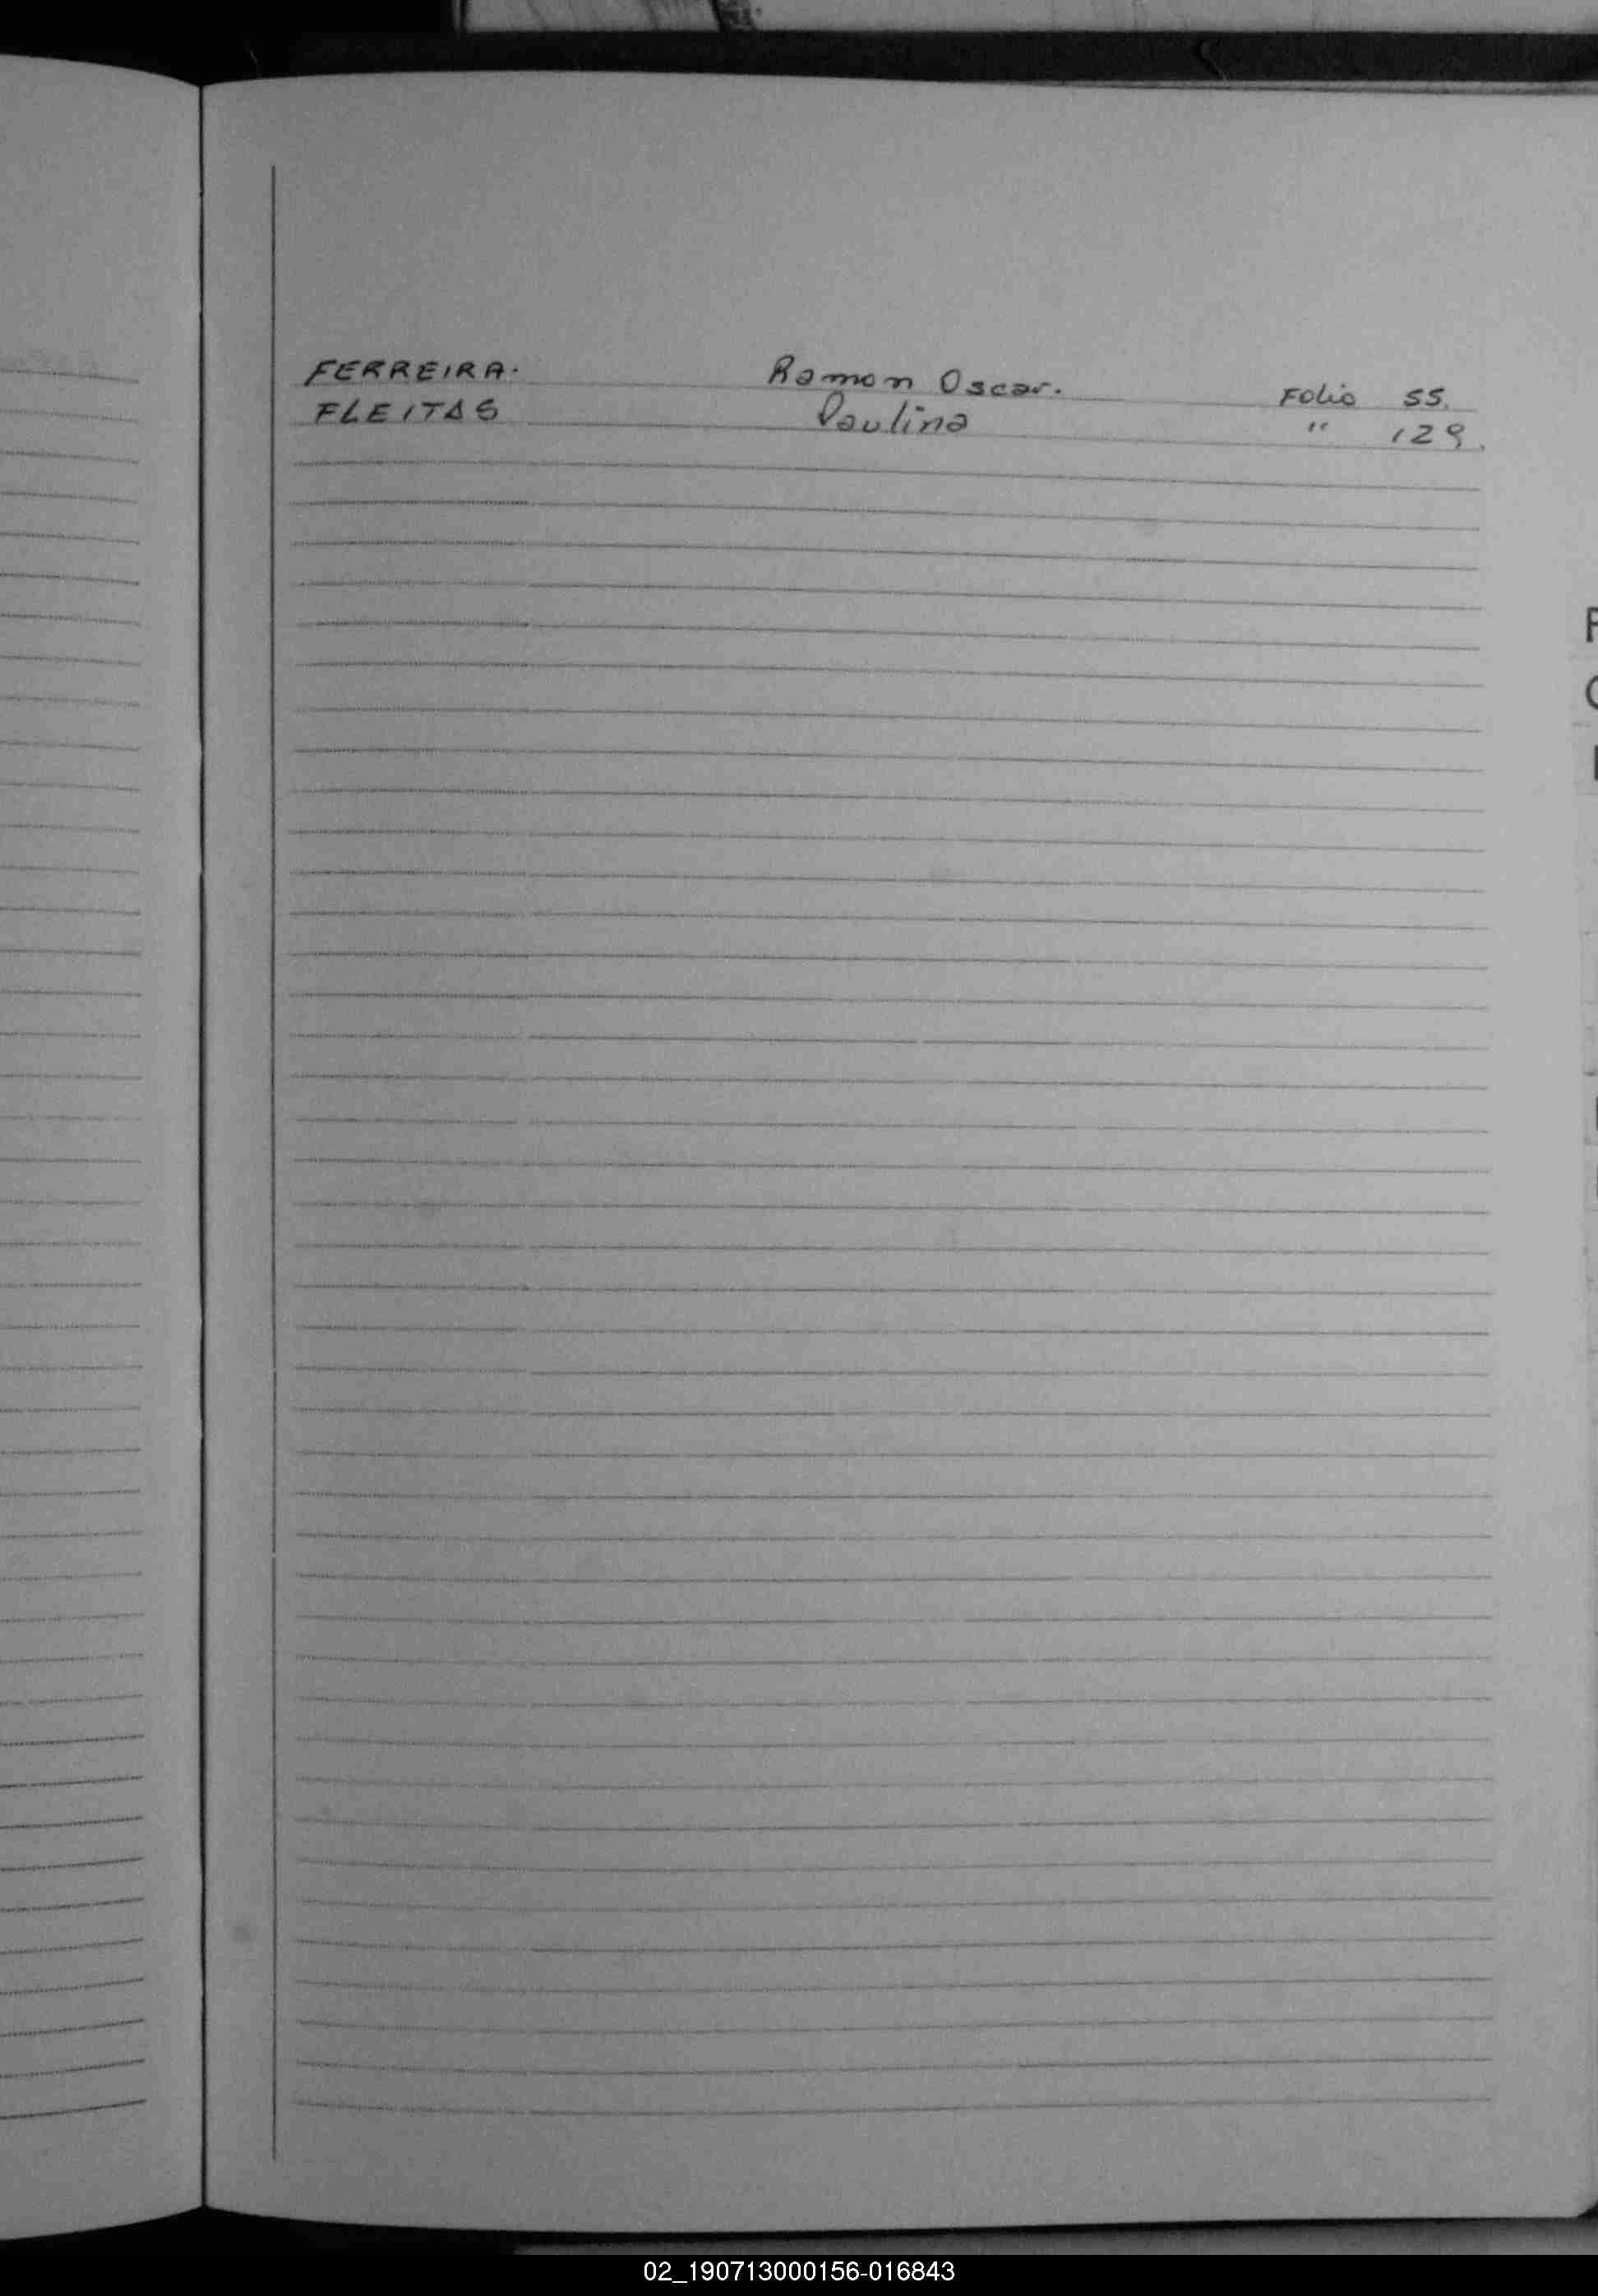 FERREIRA. Ramon Oscar. Folio 55.
FLEITAS Paulina " 129.
F
02_190713000156-016843